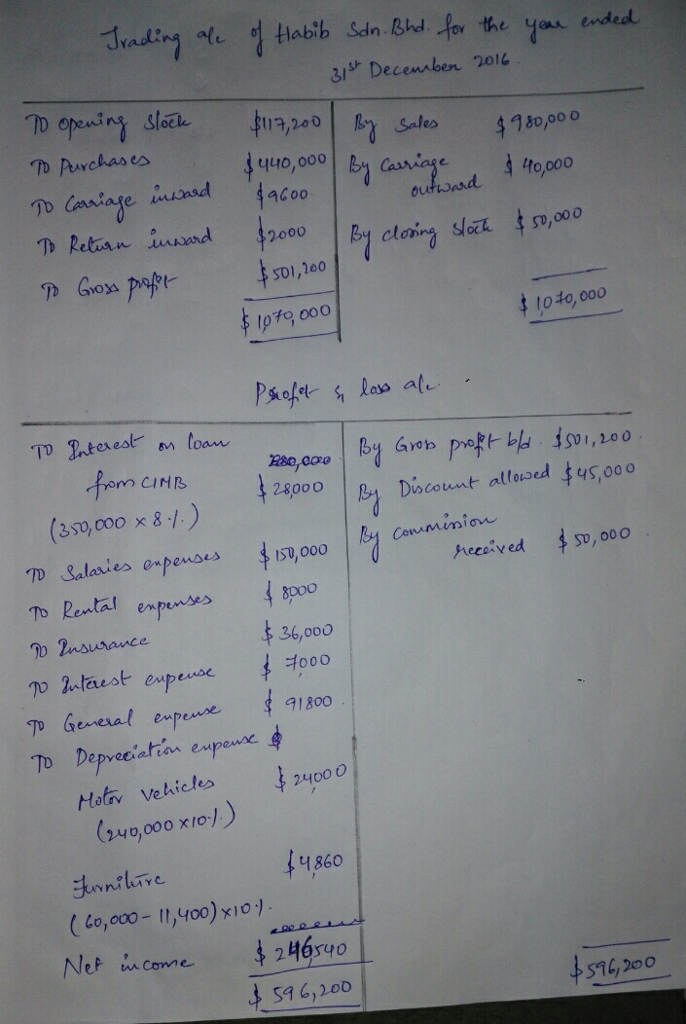 Trading a/c of Habib Sdn. Bhd. for the year ended
31st December 2016.
To opening stock $117,200 By Sales $980,000
To Purchases $440,000 By Carriage outward $40,000
To Carriage inward $9600
To Return inward $2000 By closing stock $50,000
To Gross profit $501,200
$1,070,000 $1,070,000
Profit & loss a/c.
To Interest on loan By Gross profit b/d. $501,200
from CIMB $28,000 By Discount allowed $45,000
(350,000 x 8%) By commission
To Salaries expenses $150,000 received $50,000
To Rental expenses $8000
To Insurance $36,000
To Interest expense $7000
To General expense $91800
To Depreciation expense $
Motor vehicles $24000
(240,000 x 10%)
Furniture $4,860
(60,000 - 11,400) x 10%.
Net income $246,540
$596,200 $596,200